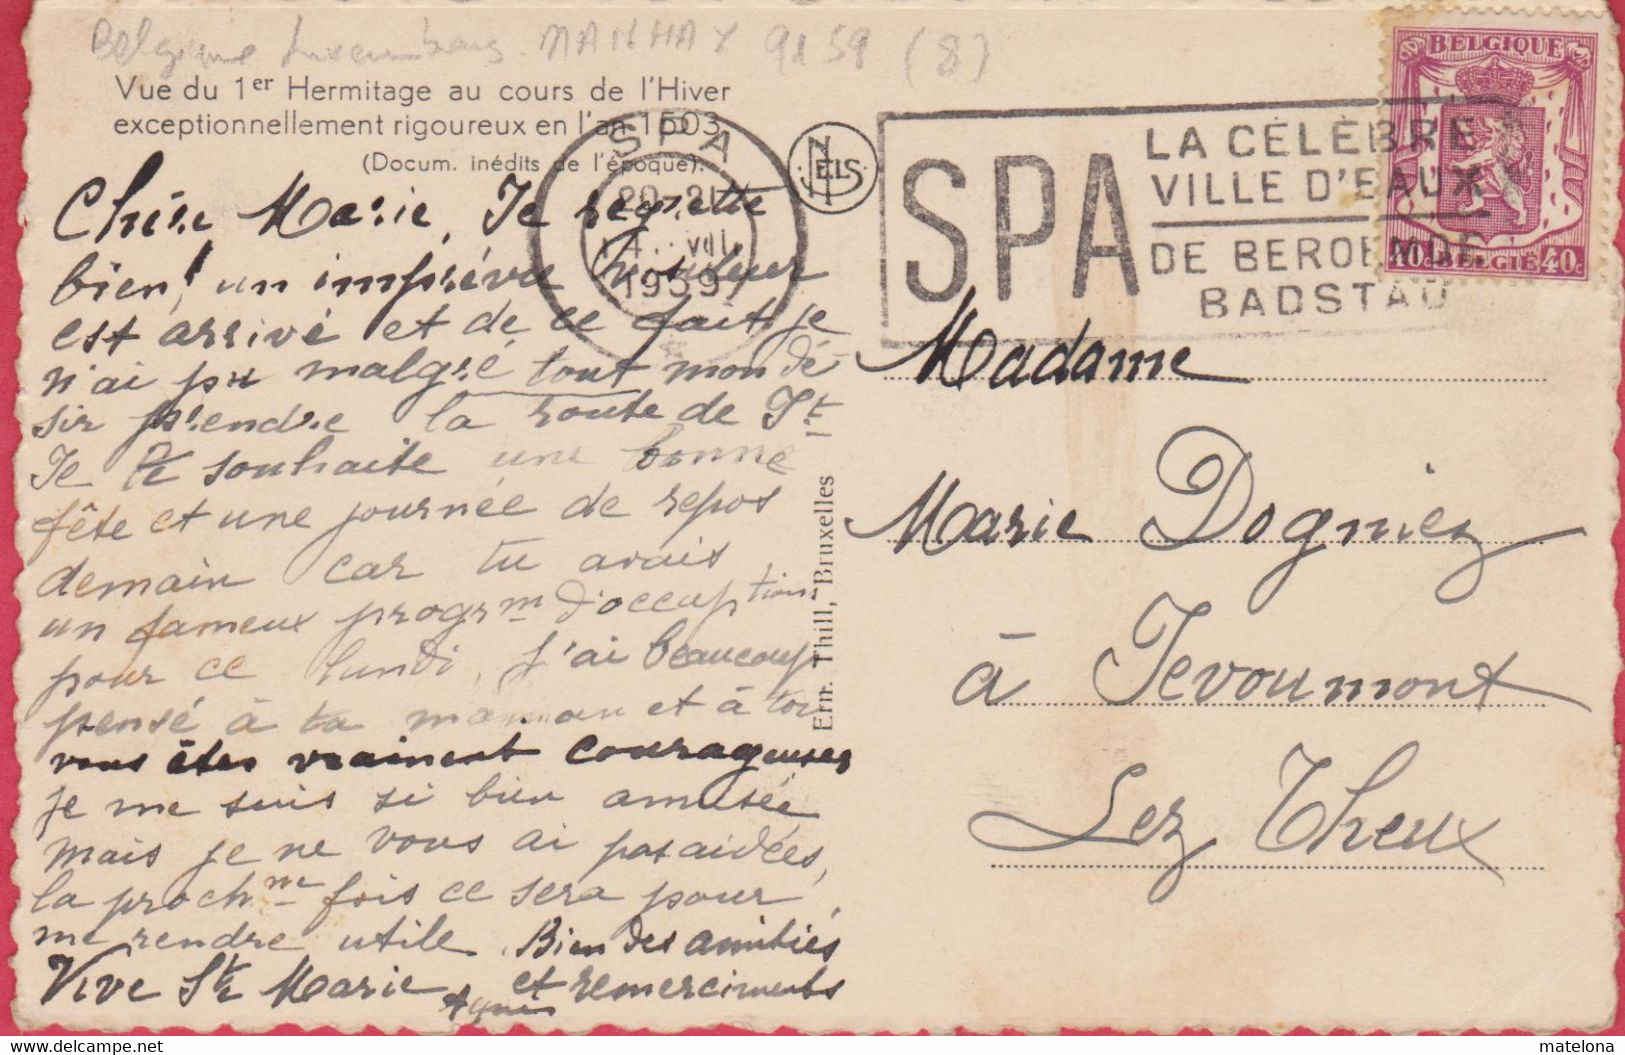 Belgique Luxembourg. MANHAY 9159 (8)
Vue du 1er Hermitage au cours de l'Hiver
exceptionnellement rigoureux en l'an 1503
(Docum. inédits de l'époque).
SPA
20-21
14 VIII
1959
NELS
SPA
LA CÉLÈBRE
VILLE D'EAUX
DE BEROEMDE
BADSTAD
BELGIQUE
40c BELGIË 40c
Chère Marie, Je regrette
bien! un imprévu
est arrivé et de ce fait je
n'ai pu malgré tout mon dé-
sir prendre la route de J.t
Je te souhaite une bonne
fête et une journée de repos
demain car tu avais
un fameux progrm d'occuption
pour ce lundi, j'ai beaucoup
pensé à ta maman et à toi
vous êtes vraiment courageuses
je me suis si bien amusée
mais je ne vous ai pas aidées,
la prochne fois ce sera pour
me rendre utile. Bien des amitiés
Vive Ste Marie et remerciments
Agnès
Ern. Thill, Bruxelles
Madame
Marie Dogniez
à Jevoumont
Lez Theux